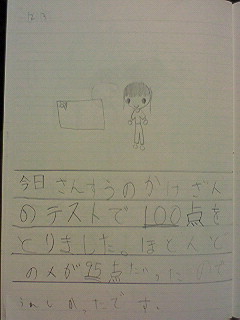 今日さんすうのかけざん
のテストで100点を
とりました。ほとんど
の人が95点だったので
うれしかったです。